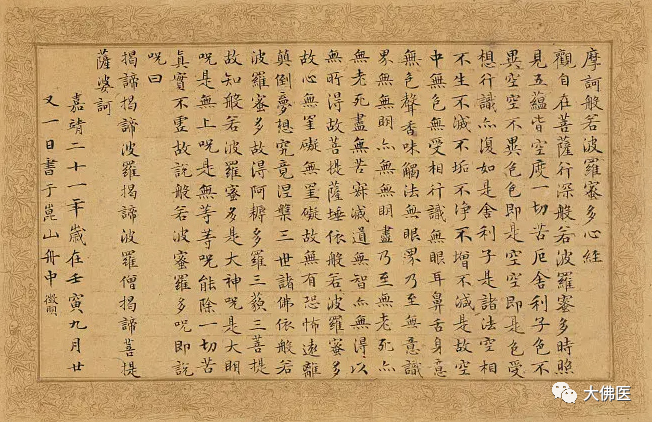 摩訶般若波羅蜜多心經
觀自在菩薩行深般若波羅蜜多時照
見五蘊皆空度一切苦厄舍利子色不
異空空不異色色即是空空即是色受
想行識亦復如是舍利子是諸法空相
不生不滅不垢不淨不增不減是故空
中無色無受相行識無眼耳鼻舌身意
無色聲香味觸法無眼界乃至無意識
界無無明亦無無明盡乃至無老死亦
無老死盡無苦寂滅道無智亦無得以
無所得故菩提薩埵依般若波羅蜜多
故心無罣礙無罣礙故無有恐怖遠離
顛倒夢想究竟涅槃三世諸佛依般若
波羅蜜多故得阿耨多羅三藐三菩提
故知般若波羅蜜多是大神呪是大明
呪是無上呪是無等等呪能除一切苦
真實不虛故說般若波蜜羅多呪即說
呪曰
揭諦揭諦波羅揭諦波羅僧揭諦菩提
薩婆訶
嘉靖二十一年歲在壬寅九月廿
又一日書于崑山舟中 徵明
大佛医